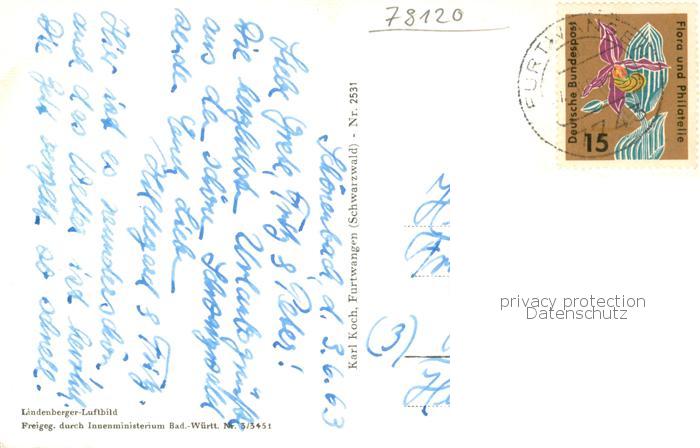 78120
Schönenbach, d. 3.6.63
Liebe Grete, Fritz & Peter!
Die herzlichsten Urlaubsgrüße
aus dem schönen Schwarzwald
senden Euch Liebe
Hildegard & Fritz.
Hier ist es wunderschön
und das Wetter ist herrlich.
Die Zeit vergeht so schnell.
Karl Koch, Furtwangen (Schwarzwald) - Nr. 2531
(3)
Lindenberger-Luftbild
Freigeg. durch Innenministerium Bad.-Württ. Nr. 3/3451
FURTWANGEN
Deutsche Bundespost
Flora und Philatelie
15
privacy protection
Datenschutz